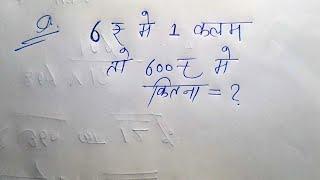 Q. 6 ₹ मे 1 कलम
तो 600 ₹ मे
कितना = ?